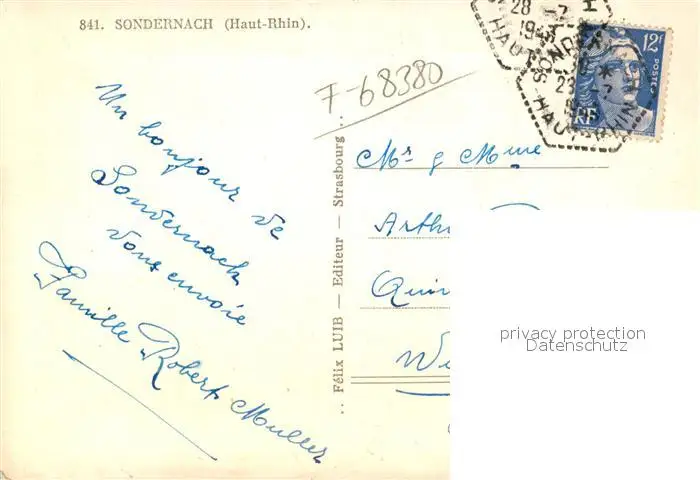 841. SONDERNACH (Haut-Rhin).
Un bonjour de
Sondernach
vous envoie
Famille Robert Muller
Félix LUIB — Editeur — Strasbourg
F-68380
28 -7
23 -7
SONDERNACH
12F
POSTES
RF
Mr & Mme
privacy protection
Datenschutz